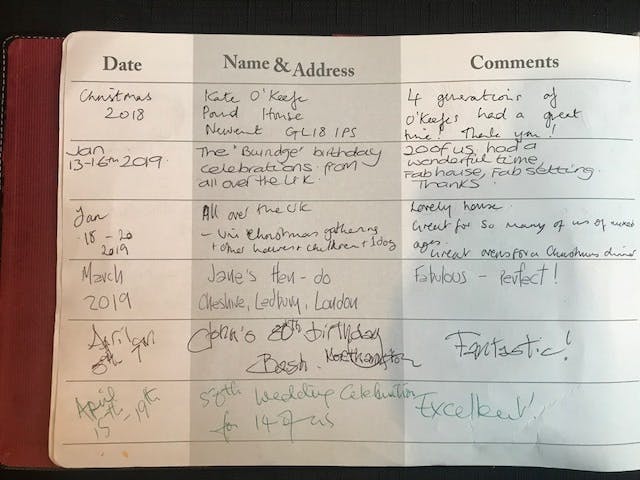 Date
Name & Address
Comments
Christmas
2018
Kate O'Keefe
Pound House
Newent GL18 1PS
4 generations of
O'Keefes had a great
time! Thank you!
Jan
13-16th 2019
The 'Burridge' birthday
celebrations from
all over the U.K.
20 of us had a
wonderful time,
Fab house, Fab setting.
Thanks
Jan
18 - 20
2019
All over the UK
- Uni Christmas gathering
+ children + 1 dog
Lovely house.
Great for so many of us of mixed
ages.
Great ovens for a Christmas dinner
March
2019
Jane's Hen - do
Cheshire, Ledbury, London
Fabulous - Perfect!
April
John's 80th birthday
Bash. Northampton
Fantastic!
April
15th - 19th
50th Wedding Celebration
for 14 of us
Excellent!